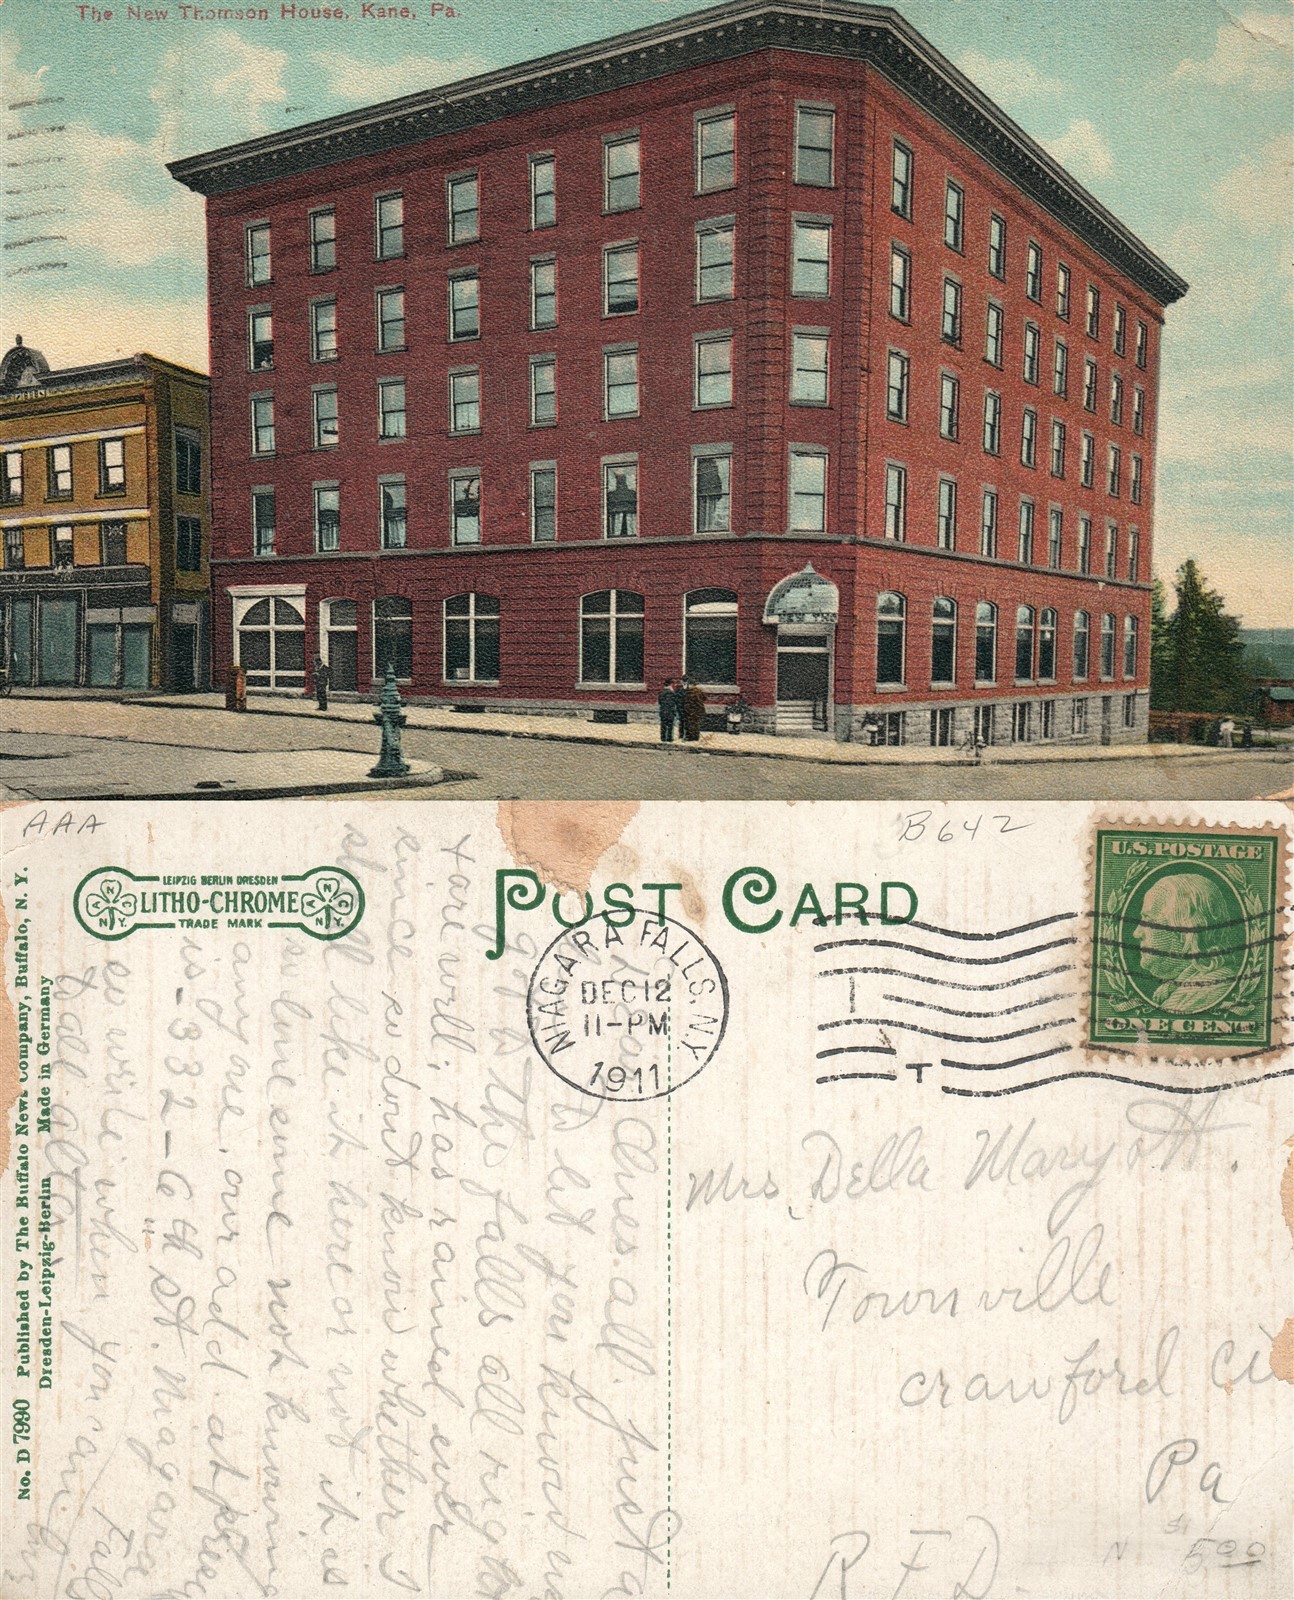 The New Thomson House, Kane, Pa.
AAA
B642
LEIPZIG BERLIN DRESDEN
LITHO-CHROME
TRADE MARK
ANC
N.Y.
ANC
N.Y.
POST CARD
U.S. POSTAGE
ONE CENT
NIAGARA FALLS, N.Y.
DEC 12
11-PM
1911
T
Mrs. Della Maryott.
Townville
Crawford Co
Pa
R F D.
N
5.00
Dear Ones all. Just a
to let you know we
got to the falls all right
+ are well; has rained ever
since so dont know whether I
shall like it here or not it is
so lonesome not knowing
any one. our add. at
is - 332-6th St. Niagara Falls
so write when you can.
No. D 7990 Published by The Buffalo News Company, Buffalo, N. Y.
Dresden-Leipzig-Berlin Made in Germany